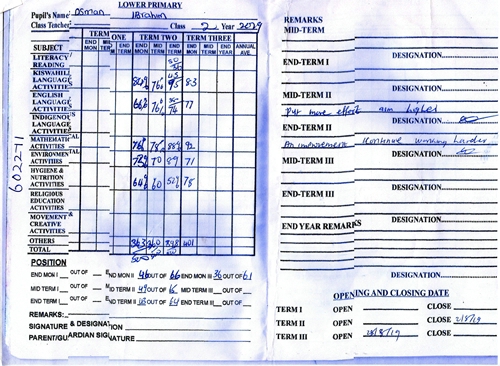 LOWER PRIMARY
Pupil's Name Osman Ibrahim
Class Teacher Class 2 Year 2019
TERM ONE TERM TWO TERM THREE
SUBJECT END MON MID TERM END TERM END MON MID TERM END TERM END MON MID TERM END TERM ANNUAL AVE.
LITERACY/ READING
KISWAHILI LANGUAGE ACTIVITIES 76% 83
ENGLISH LANGUAGE ACTIVITIES 76% 77
INDIGENOUS LANGUAGE ACTIVITIES
MATHEMATICAL ACTIVITIES 92
ENVIRONMENTAL ACTIVITIES 70 89 71
HYGIENE & NUTRITION ACTIVITIES 64% 60 78
RELIGIOUS EDUCATION ACTIVITIES
MOVEMENT & CREATIVE ACTIVITIES
OTHERS
TOTAL 363 360 398 401
POSITION
END MON I OUT OF END MON II 46 OUT OF 66 END MON III 36 OUT OF 61
MID TERM I OUT OF MID TERM II 49 OUT OF MID TERM III OUT OF
END TERM I OUT OF END TERM II OUT OF 64 END TERM III OUT OF
REMARKS:
SIGNATURE & DESIGNATION
PARENT/GUARDIAN SIGNATURE
602271
REMARKS
MID-TERM
DESIGNATION
END-TERM I
DESIGNATION
MID-TERM II
Put more effort aim higher
DESIGNATION
END-TERM II
An improvement Continue working harder
DESIGNATION
MID-TERM III
DESIGNATION
END-TERM III
DESIGNATION
END YEAR REMARKS
DESIGNATION
OPENING AND CLOSING DATE
TERM I OPEN CLOSE
TERM II OPEN CLOSE 2/8/19
TERM III OPEN 28/8/19 CLOSE